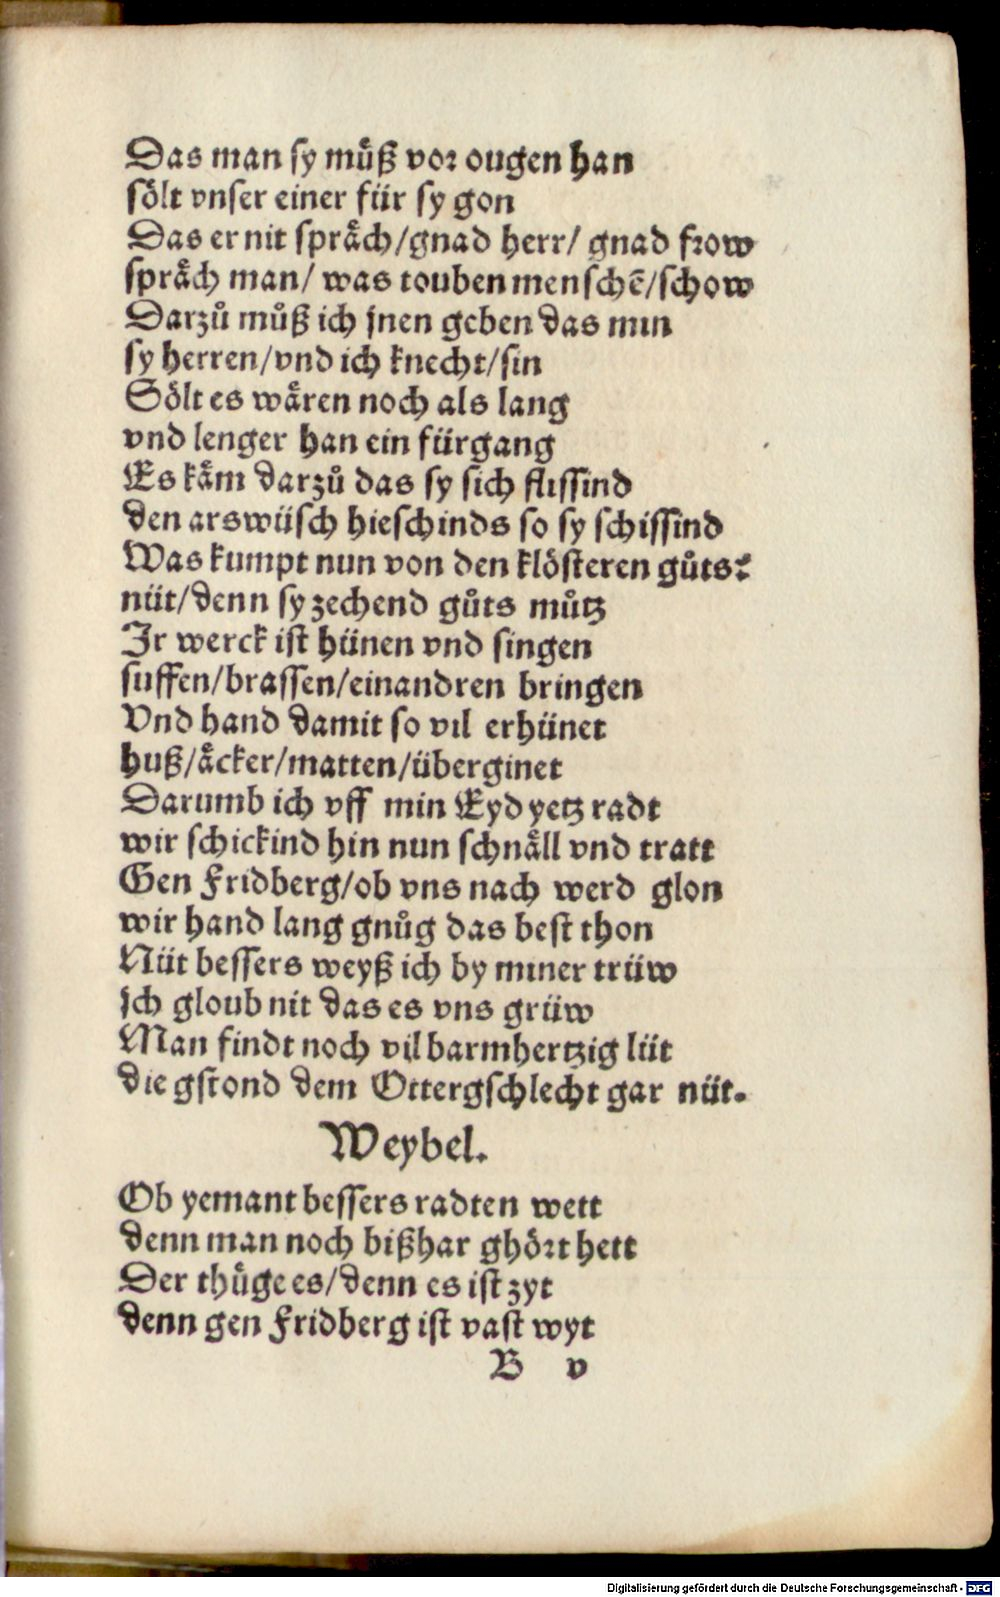 Das man sy muͤß vor ougen han
soͤlt vnser einer für sy gon
Das er nit spraͤch/gnad herr/ gnad frow
spraͤch man/ was touben menschē/schow
Darzuͦ muͦß ich jnen geben das min
sy herren/vnd ich knecht/sin
Soͤlt es waͤren noch als lang
vnd lenger han ein fürgang
Es kaͤm darzuͦ das sy sich flissind
den arswüsch hieschinds so sy schissind
Was kumpt nun von den kloͤsteren guͦts?
nüt/denn sy zechend guͦts muͦtz
Ir werck ist hünen vnd singen
suffen/brassen/einandren bringen
Vnd hand damit so vil erhünet
huß/aͤcker/matten/überginet
Darumb ich vff min Eyd yetz radt
wir schickind hin nun schnaͤll vnd tratt
Gen Fridberg/ob vns nach werd glon
wir hand lang gnuͦg das best thon
Nüt bessers weyß ich by miner trüw
ich gloub nit das es vns grüw
Man findt noch vil barmhertzig lüt
die gstond dem Ottergschlecht gar nüt.
Weybel.
Ob yemant bessers radten wett
denn man noch bißhar ghoͤrt hett
Der thuͤge es/denn es ist zyt
denn gen Fridberg ist vast wyt
B v
Digitalisierung gefördert durch die Deutsche Forschungsgemeinschaft - DFG